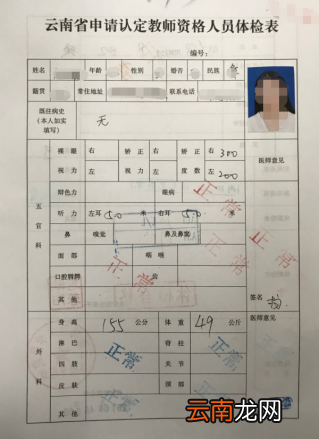 云南省申请认定教师资格人员体检表
编号：
姓名 年龄 性别 婚否 民族
籍贯 常住地址 联系电话
既往病史
（本人如实
填写）
无
五官科
裸眼 右 矫正 右 矫正 右 300
视力 左 视力 左 度数 左 200
医师意见
辩色力 眼病 正常
听力 左耳 5.0 米 右耳 5.0 米
正常
鼻 嗅觉 鼻及鼻窦
正常
面部 咽喉
正常
口腔唇腭 齿
其他
签名
外科
身高 155 公分 体重 49 公斤
医师意见
淋巴 脊柱
正常 正常
四肢 关节
皮肤 颈部
正常
其他
云南龙网